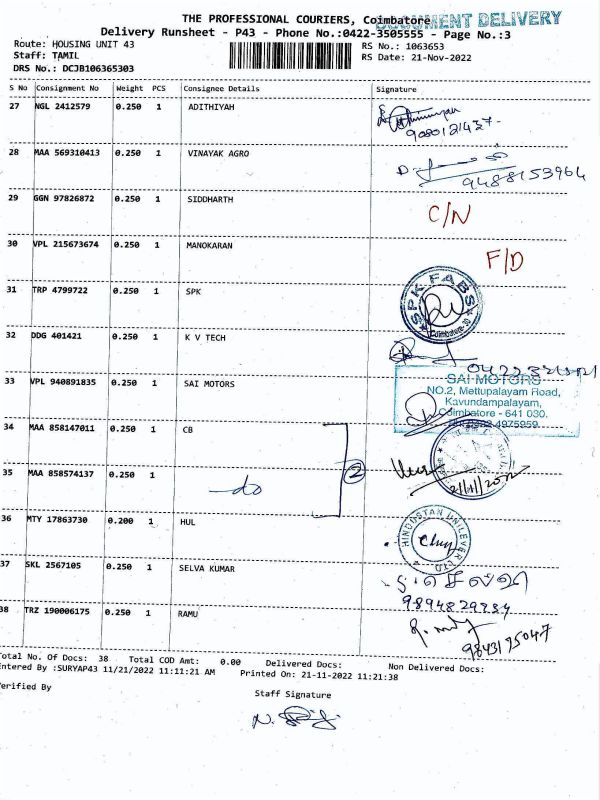 THE PROFESSIONAL COURIERS, Coimbatore
DOCUMENT DELIVERY
Delivery Runsheet - P43 - Phone No.:0422-3505555 - Page No.:3
Route: HOUSING UNIT 43 RS No.: 1063653
Staff: TAMIL RS Date: 21-Nov-2022
DRS No.: DCJB106365303
S No Consignment No Weight PCS Consignee Details Signature
27 NGL 2412579 0.250 1 ADITHIYAH
9080121437-
28 MAA 569310413 0.250 1 VINAYAK AGRO
9488153964
29 GGN 97826872 0.250 1 SIDDHARTH C/N
30 VPL 215673674 0.250 1 MANOKARAN F/D
31 TRP 4799722 0.250 1 SPK
SPK FABS
Coimbatore-30
32 DDG 401421 0.250 1 K V TECH
33 VPL 940891835 0.250 1 SAI MOTORS
SAI MOTORS
NO.2, Mettupalayam Road,
Kavundampalayam,
Coimbatore - 641 030.
34 MAA 858147011 0.250 1 CB
35 MAA 858574137 0.250 1 do 2
21/11/2022
36 MTY 17863730 0.200 1 HUL
HINDUSTAN UNILEVER LTD
37 SKL 2567105 0.250 1 SELVA KUMAR
38 TRZ 190006175 0.250 1 RAMU
9843195047
Total No. Of Docs: 38 Total COD Amt: 0.00 Delivered Docs: Non Delivered Docs:
Entered By :SURYAP43 11/21/2022 11:11:21 AM Printed On: 21-11-2022 11:21:38
Verified By
Staff Signature